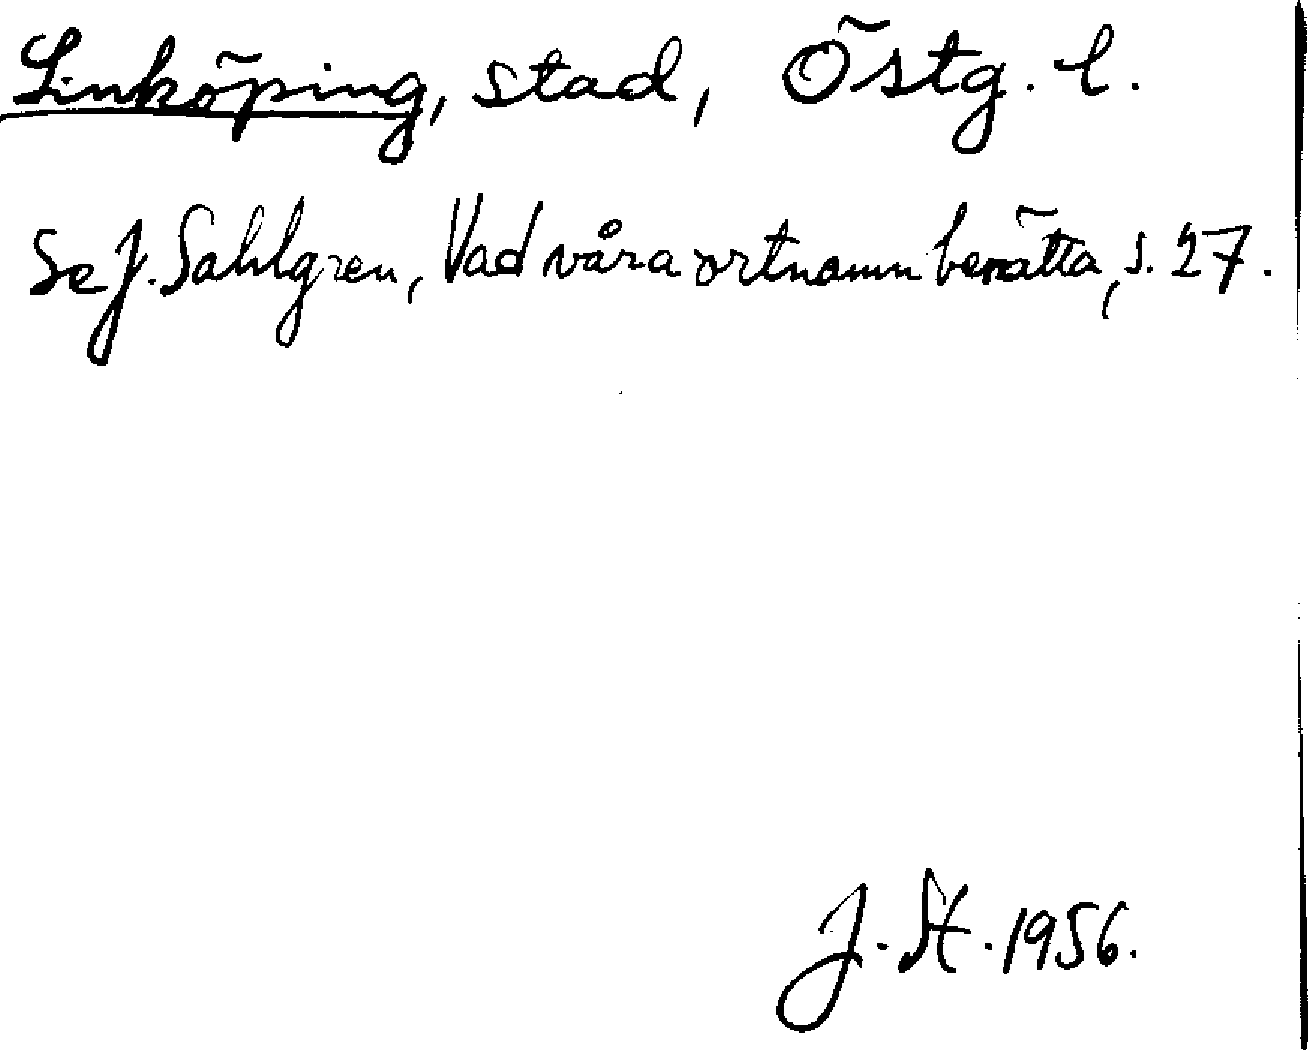 Linköping, stad, Östg. l.
Se J. Sahlgren, Vad våra ortnamn berätta, s. 27.
J. St. 1956.